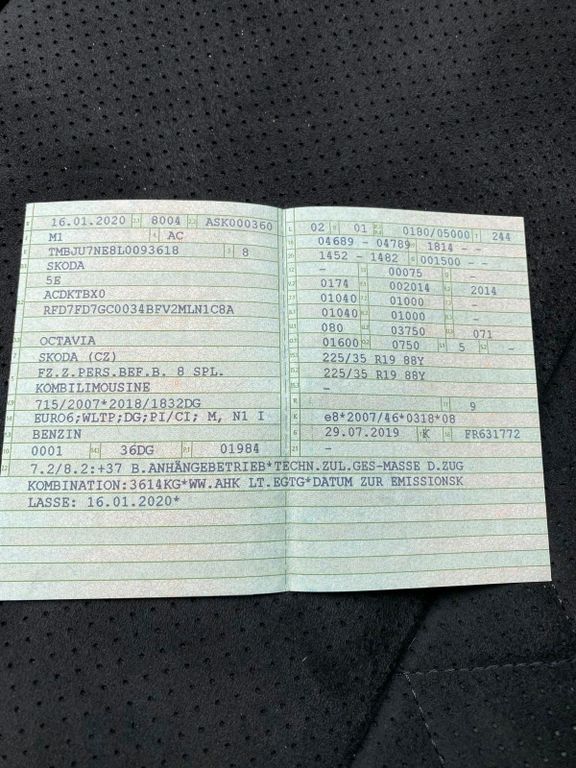 16.01.2020 8004 ASK000360
M1 AC
TMBJU7NE8L0093618 8
SKODA
5E
ACDKTBX0
RFD7FD7GC0034BFV2MLN1C8A
OCTAVIA
SKODA (CZ)
FZ.Z.PERS.BEF.B. 8 SPL.
KOMBILIMOUSINE
715/2007*2018/1832DG
EURO6;WLTP;DG;PI/CI; M, N1 I
BENZIN
0001 36DG 01984
02 01 0180/05000 244
04689 - 04789 1814 - -
1452 - 1482 001500 - -
- 00075 -
0174 002014 2014
01040 01000 -
01040 01000 -
080 03750 071
01600 0750 5 -
225/35 R19 88Y
225/35 R19 88Y
-
9
e8*2007/46*0318*08
29.07.2019 K FR631772
-
7.2/8.2:+37 B.ANHÄNGEBETRIEB*TECHN.ZUL.GES-MASSE D.ZUG
KOMBINATION:3614KG*WW.AHK LT.EGTG*DATUM ZUR EMISSIONSK
LASSE: 16.01.2020*